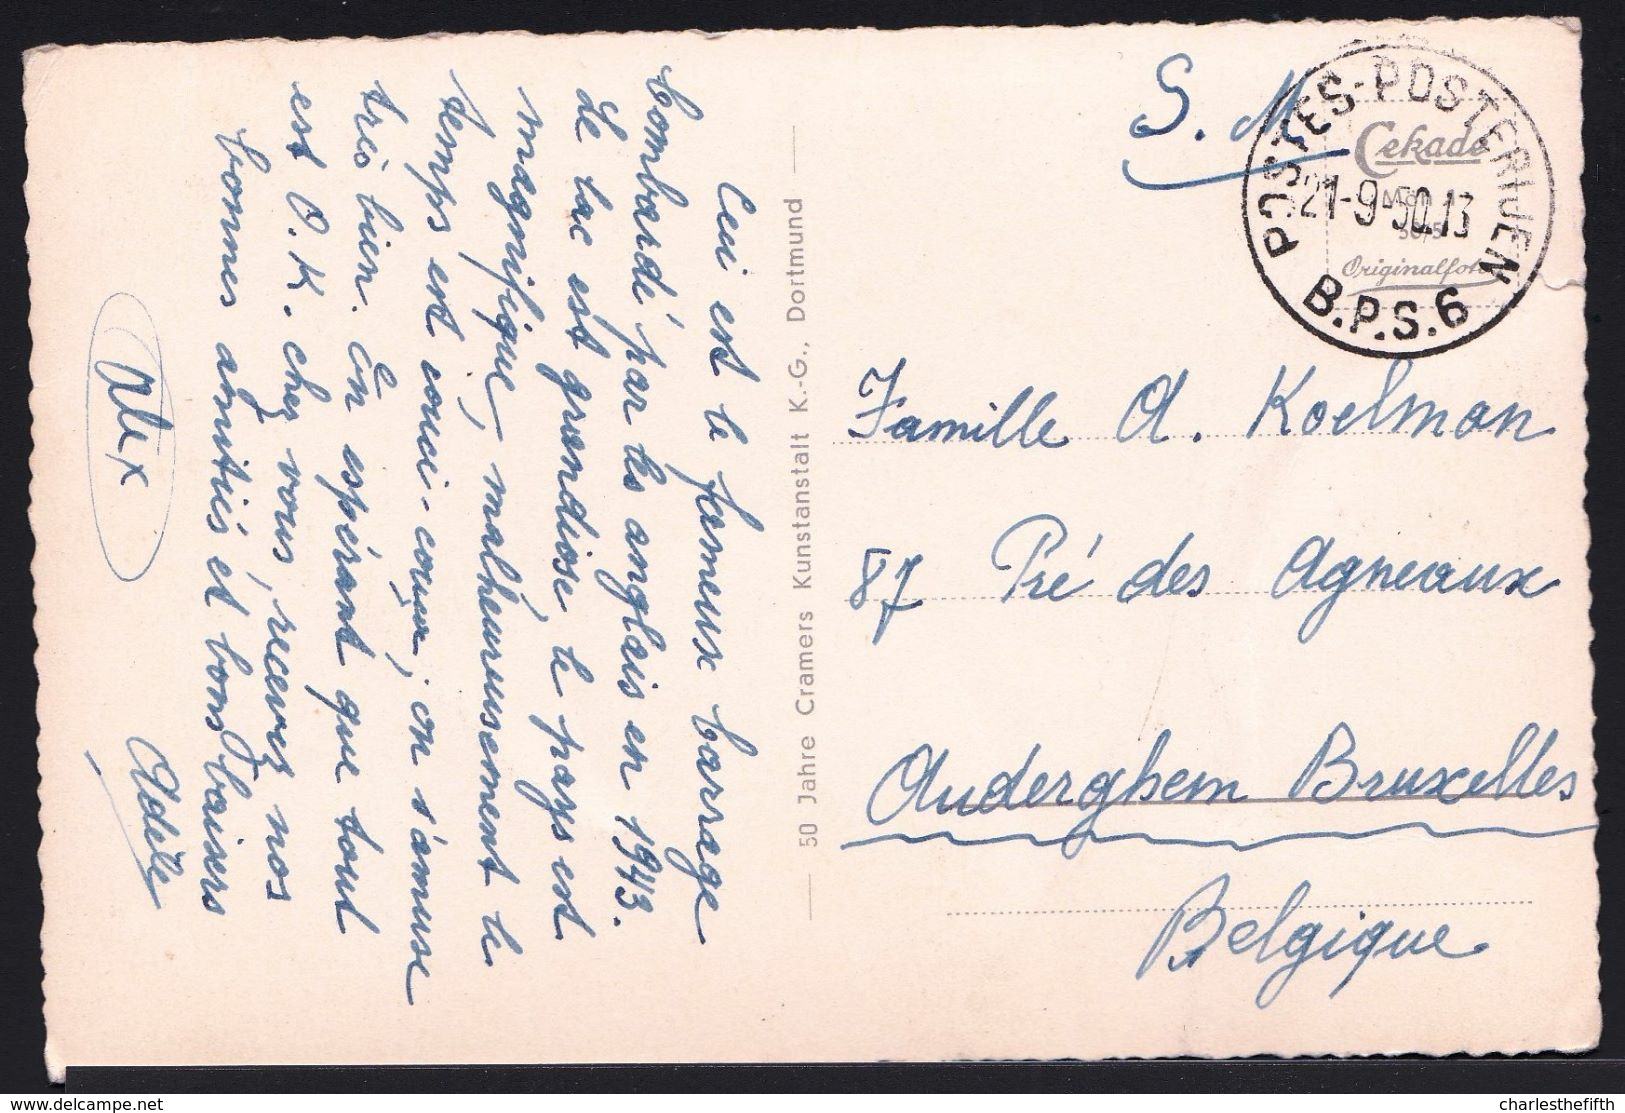 Ceci est le fameux barrage
bombardé par les anglais en 1943.
Le lac est grandiose, le pays est
magnifique, malheureusement le
temps est couci-couça, on s'amuse
très bien. En espérant que tout
est O.K. chez vous, recevez nos
bonnes amitiés et bons baisers
Adèle
Alex
50 Jahre Cramers Kunstanstalt K.-G., Dortmund
S. M.
POSTES-POSTERIJEN
21-9-50.13
B.P.S.6
Cekade
Original foto
Famille A. Koelman
87 Pré des Agneaux
Auderghem Bruxelles
Belgique
delcampe.net
charlesthefifth